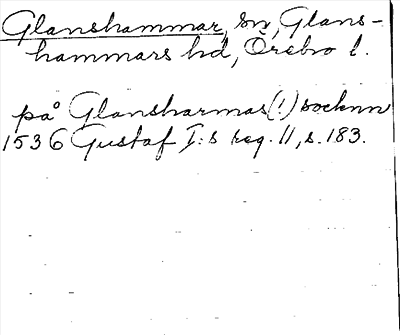 Glanshammar, sn, Glans-
hammars hd, Örebro l.
på Glansharmas (!) socknn
1536 Gustaf I:s reg. 11, s. 183.